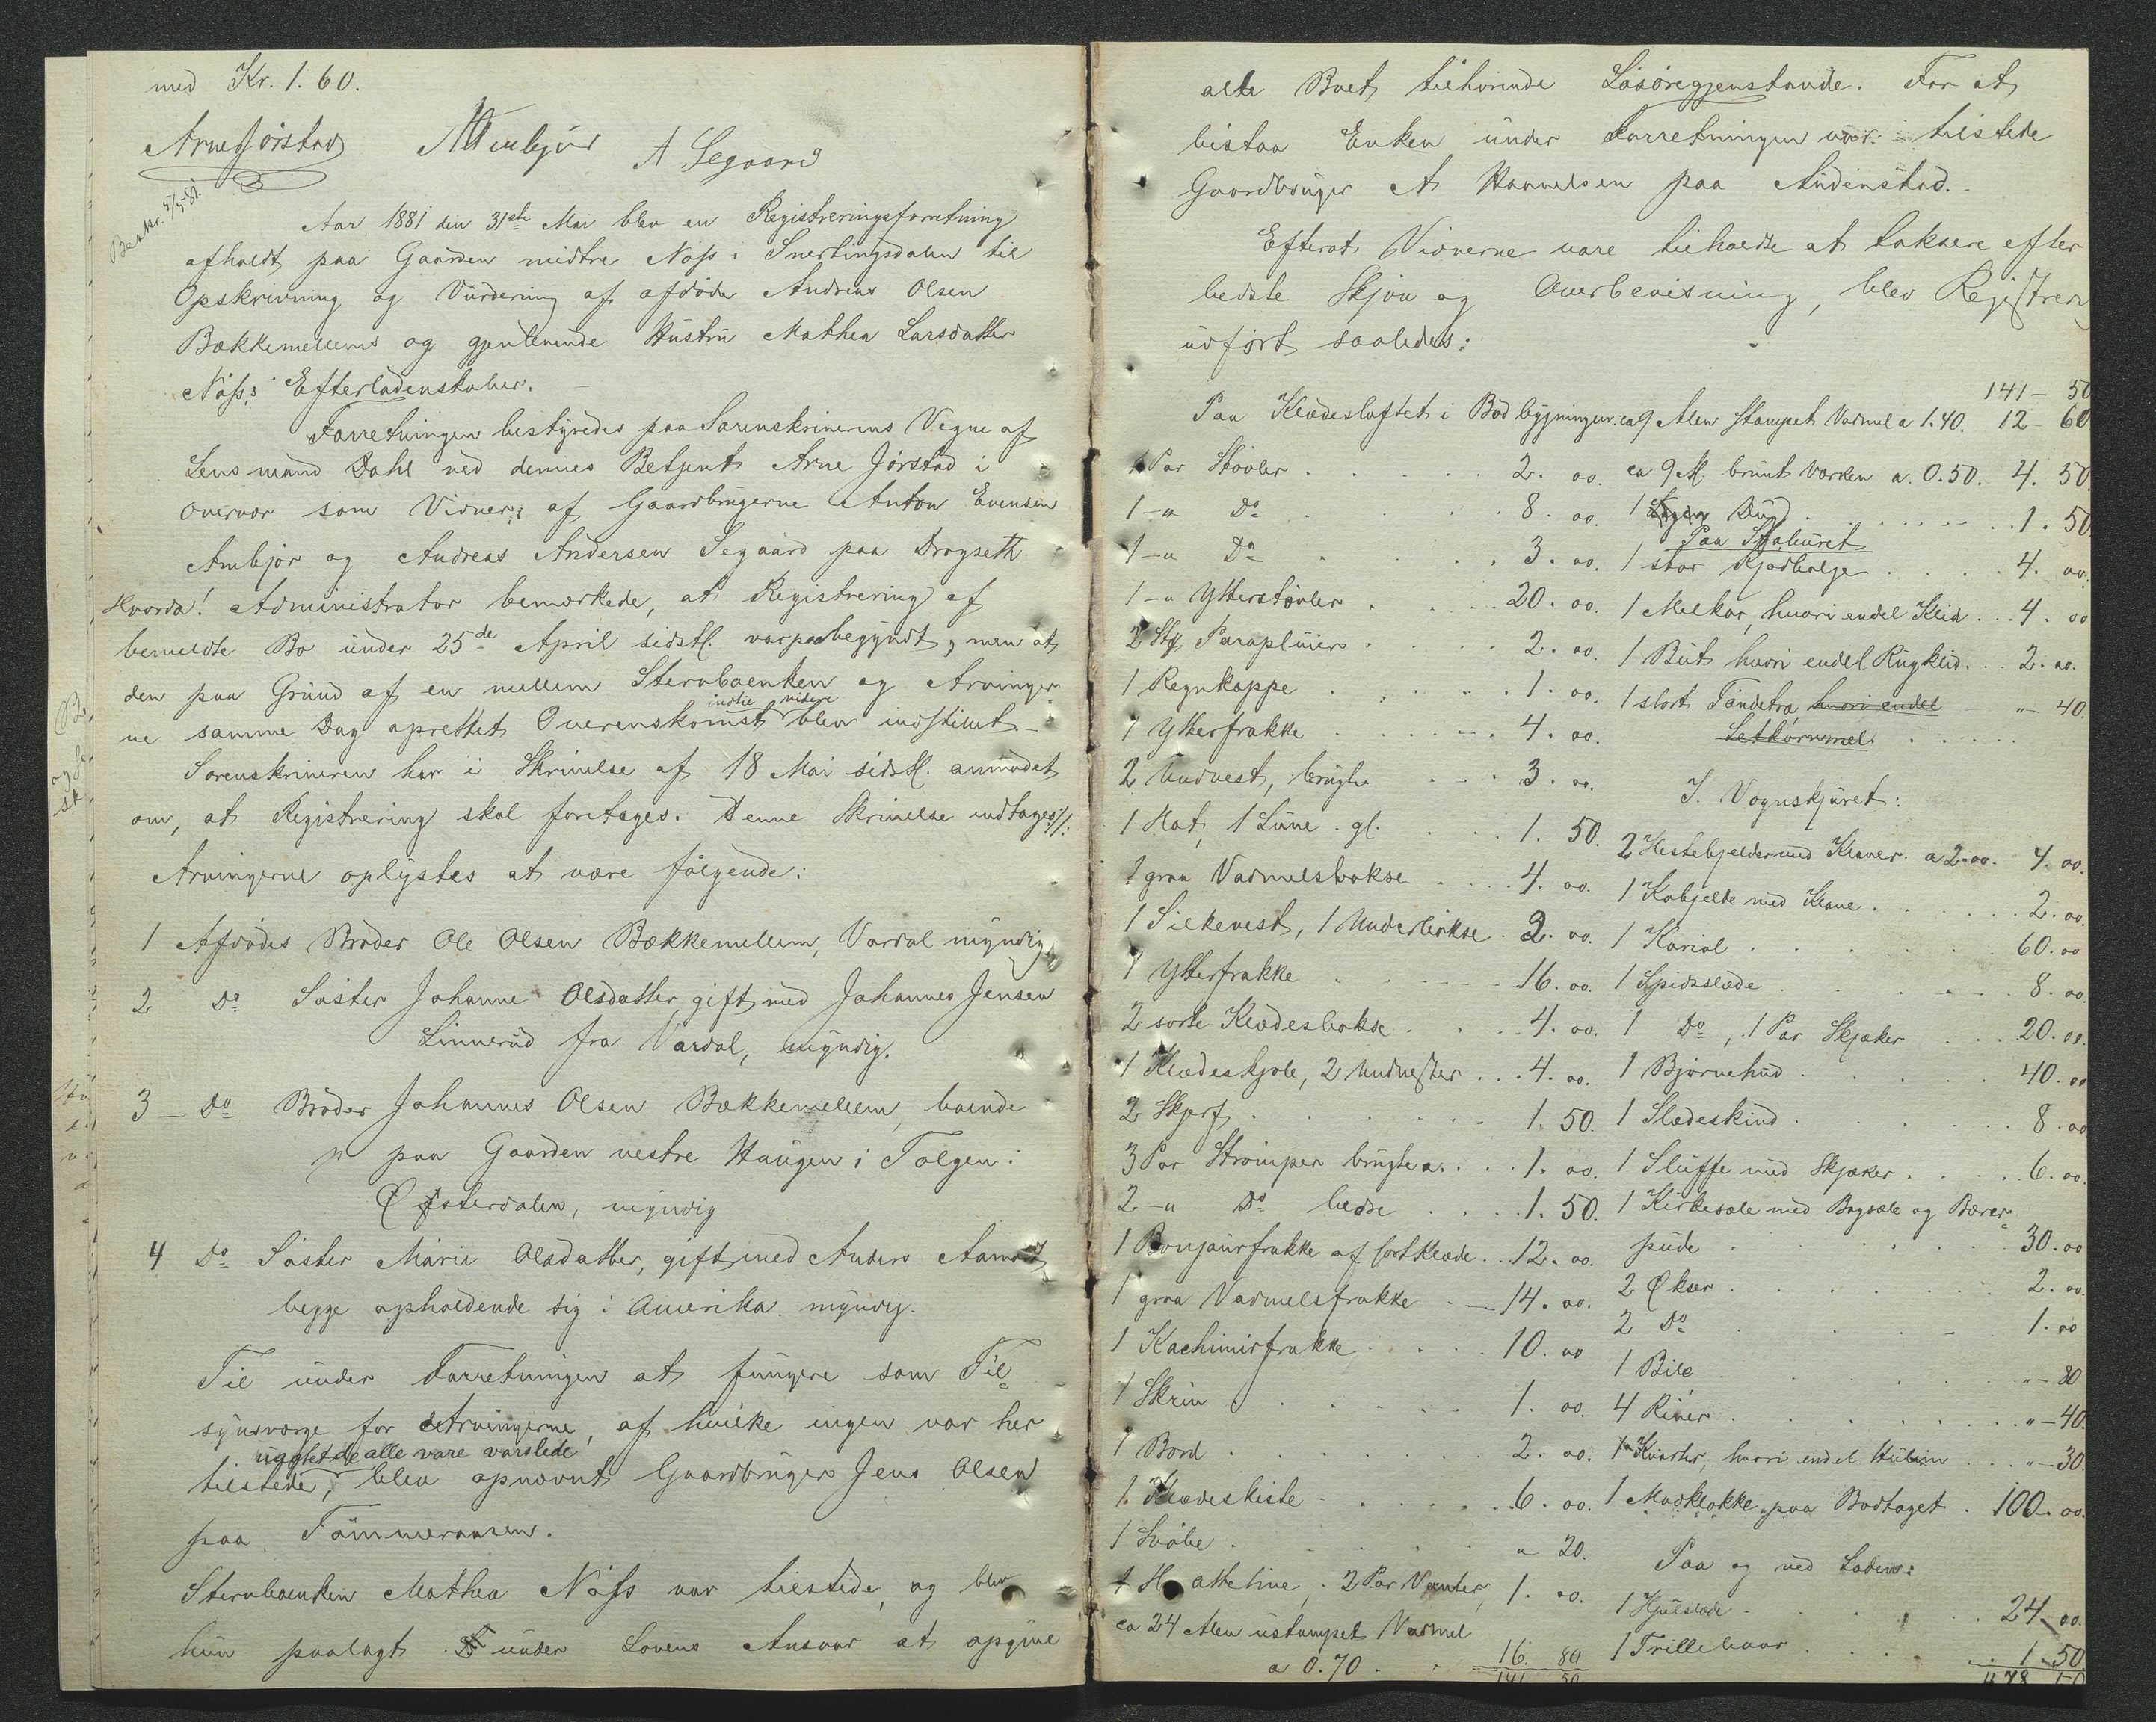 med Kr. 1. 60.
Arne Jørstad A Ambjør A Segaard
Beskr. 5/5 81.
Aar 1881 den 31ste Mai blev en Registreringsforretning
afholdt paa Gaarden midtre Næss i Snertingsdalen til
Opskrivning og Vurdering af afdøde Andreas Olsen
Bækkemellems og gjenlevende Hustru Mathea Larsdatter
Næss's Efterladenskaber. –
Forretningen bestyredes paa Sorenskriverens Vegne af
Lensmand Dahl ved dennes Betjent Arne Jørstad i
Overvær som Vidner: af Gaardbrugerne Anton Evensen
Ambjør og Andreas Andersen Segaard paa Dragseth
Hvorda! Administrator bemærkede, at Registrering af
bemeldte Bo under 25de April sidstl. var paabegyndt, men at
den paa Grund af en mellem Stervboenken og Arvinger-
ne samme Dag oprettet Overenskomst indtil videre blev indstillet. –
Sorenskriveren har i Skrivelse af 18 Mai sidstl. anmodet
om, at Registrering skal foretages. Denne Skrivelse indtages:/:
Arvingerne oplystes at være følgende:
1 Afdødes Broder Ole Olsen Bækkemellem, Vardal myndig
2 Do Søster Johanne Olsdatter, gift med Johannes Jensen
Linnerud fra Vardal, myndig.
3 – Do Broder Johannes Olsen Bækkemellem, boende
paa Gaarden vestre Haugen i Tolgen i
Østerdalen, myndig
4 Do Søster Marie Olsdatter, gift med Anders Aamodt,
begge opholdende sig i Amerika myndig.
Til under Forretningen at fungere som Til-
synsværge for Arvingerne, af hvilke ingen var her
uagtet de alle vare varslede
tilstede, blev opnævnt Gaardbruger Jens Olsen
paa Tømmeraasen.
Stervboenken Mathea Næss var tilstede, og blev
hun paalagt under Lovens Ansvar at opgive
alle Boet tilhørende Løsøregjenstande. For at
bistaa Enken under Forretningen var tilstede
Gaardbruger A Hannelsen paa Audenstad. –
Efterat Vidnerne vare tilholdte at taksere efter
bedste Skjøn og Overbevisning, blev Registreri
udført saaledes:
Paa Klædesloftet i Bodbygningen:
1 Par Støvler . . . 2. oo.
1 –"– Do . . . 8. oo.
1 –"– Do . . . 3. oo.
1 –"– Ytterstøvler . . . 20. oo.
2 Stk Parapluier . . . 2. oo.
1 Regnkappe . . . 1. oo.
1 Ytterfrakke . . . 4. oo.
2 Undvest, brugte . . . 3. oo.
1 Hat, 1 Lue. gl. . . 1. 50.
1 graa Vadmelsbokse . . . 4. oo.
1 Silkevest, 1 Underbokse . 2. oo.
1 Ytterfrakke . . . 16. oo.
2 sorte Klædesbokse . . . 4. oo.
1 Klædeskjole, 2 Undvester . . . 4. oo.
2 Skjerf . . . 1. 50.
3 Par Strømper brugte a. . . 1. oo.
2 –"– Do bedre . . . 1. 50.
1 Bonjourfrakke af sort Klæde . . 12. oo.
1 graa Vadmelsfrakke . – 14. oo.
1 Kachimirfrakke . . . 10. oo
1 Skrin . . . 1. oo.
1 Bord . . . 2. oo.
1 Klædeskiste . . . 6. oo.
1 Svøbe . . . " 20.
1 Hattetine, 2 Par Vanter, 1. oo.
ca 24 Alen ustampet Vadmel
a 0.70 . . 16. 80
141 50
141 – 50
ca 9 Alen stampet Vadmel a 1.40. 12 – 60
ca 9 Al. brunt Værken a. 0.50. 4. 50.
1 Dug . . . 1. 50
Paa Stabburet
1 stor Kjødbalje . . . 4. oo.
1 Melkar, hvori endel Klid . . . 4. oo
1 But hvori endel Rugklid. . . 2. oo.
1 stort Tøndetra, hvori endel – "– 40.
Letkornmel . . .
I Vognskjuret:
2 Hestebjelder med Klaver. a 2.oo. 4. oo.
1 Kobjelde med Klave . . . 2. oo.
1 Kariol . . . 60. oo
1 Spidsslæde . . . 8. oo.
1 Do, 1 Par Skjæker . . . 20. oo.
1 Bjørnehud . . . 40. oo
1 Slædeskind . . . 8. oo
1 Sluffe med Skjæker . . . 6. oo.
1 Kirkesæle med Bogsæle og Bærer-
pude . . . 30. oo
2 Økser . . . 2. oo.
2 Do . . . 1. oo
1 Bile . . . "– 80
4 River . . . "– 40.
1 Kvarter, hvori endel . . . "– 30.
1 Madklokke paa Bodtaget . 100. oo.
Paa og ved Laden:
1 Hjulslæde . . . 24. oo.
1 Trillebaar . . . 1. 50
478 50